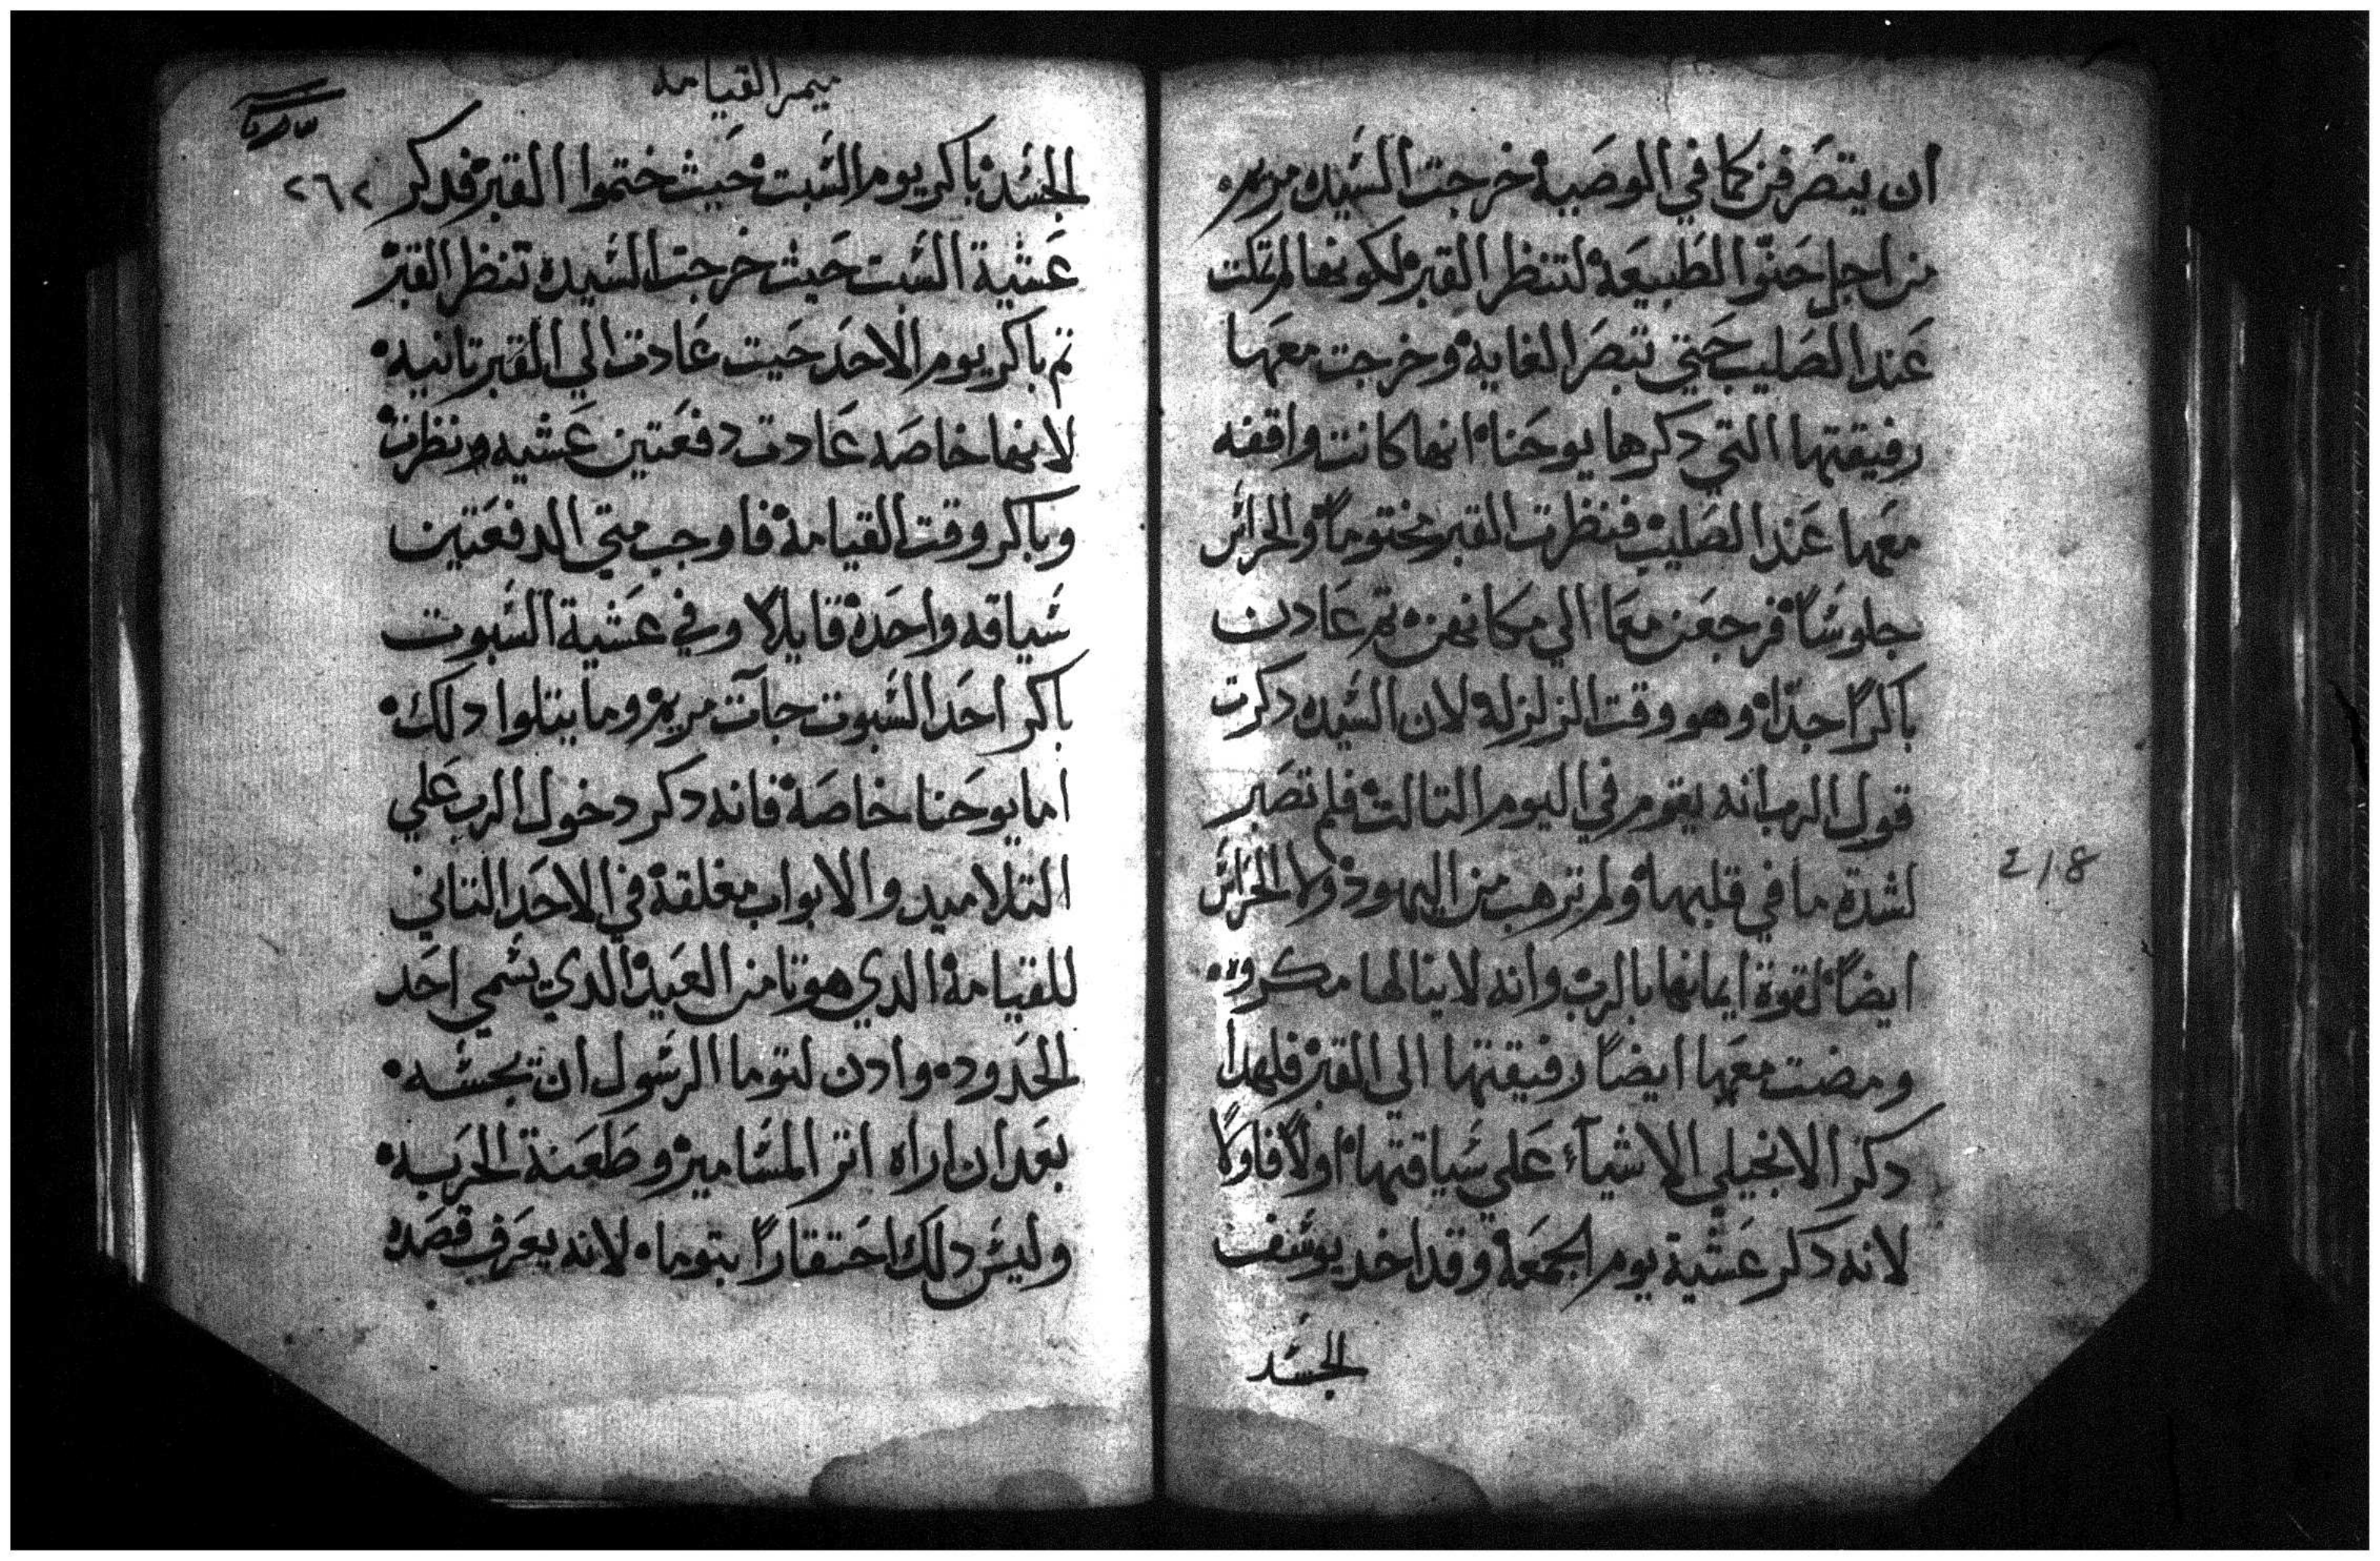 ان يتصرفن كما في الوصيه خرجت السيده مريم
من اجل حنوا الطبيعه لتنظر القبر لكونها لم تكت
عند الصليب حتي تبصر الغايه وخرجت معها
رفيقتها التي دكرها يوحنا انها كانت واقفه
معها عند الصليب فنظرت القبر مختوماً والحراس
جلوساً فرجعن معا الي مكانهن تم عادت
باكراً جداً وهو وقت الزلزله لان السيده دكرت
قول الرب انه يقوم في اليوم التالت فلم تصبر
لشدة ما في قلبها ولم ترهب من اليهود ولا الحراس
ايضاً لقوة ايمانها بالرب وانه لا ينالها مكروه
ومضت معها ايضاً رفيقتها الي القبر فلهدا
دكر الانجيلي الاشيآء علي سياقتها اولاً فاولاً
لانه دكر عشية يوم الجمعه وقد اخد يوسف
الجسد
ميمر القيامه
٢٦٢
الجسد باكر يوم السبت حيث ختموا القبر فدكر
عشية السبت حيث خرجت السيده تنظر القبر
تم باكر يوم الاحد حيت عادت الي القبر تانيه
لانها خاصه عادت دفعتين عشيه ونظرت
وباكر وقت القيامه فاوجب متي الدفعتين
سياقه واحده قايلا وفي عشية السبوت
باكر احد السبوت جآت مريم وما يتلوا دلك
اما يوحنا خاصه فانه دكر دخول الرب علي
التلاميد والابواب مغلقة في الاحد التاني
للقيامه الدي هو تامن العيد الدي يسمي احد
الحدود وادن لتوما الرسول ان يجسه
بعد ان اراه اتر المسامير وطعنة الحربه
وليس دلك احتقاراً بتوما لانه يعرف قصده